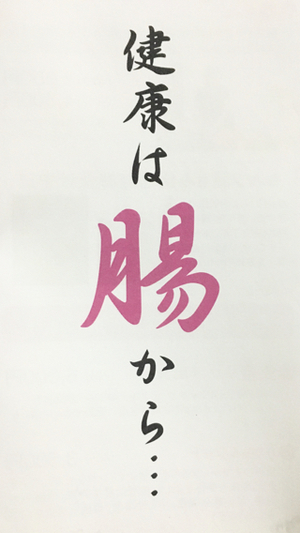 健康は腸から…